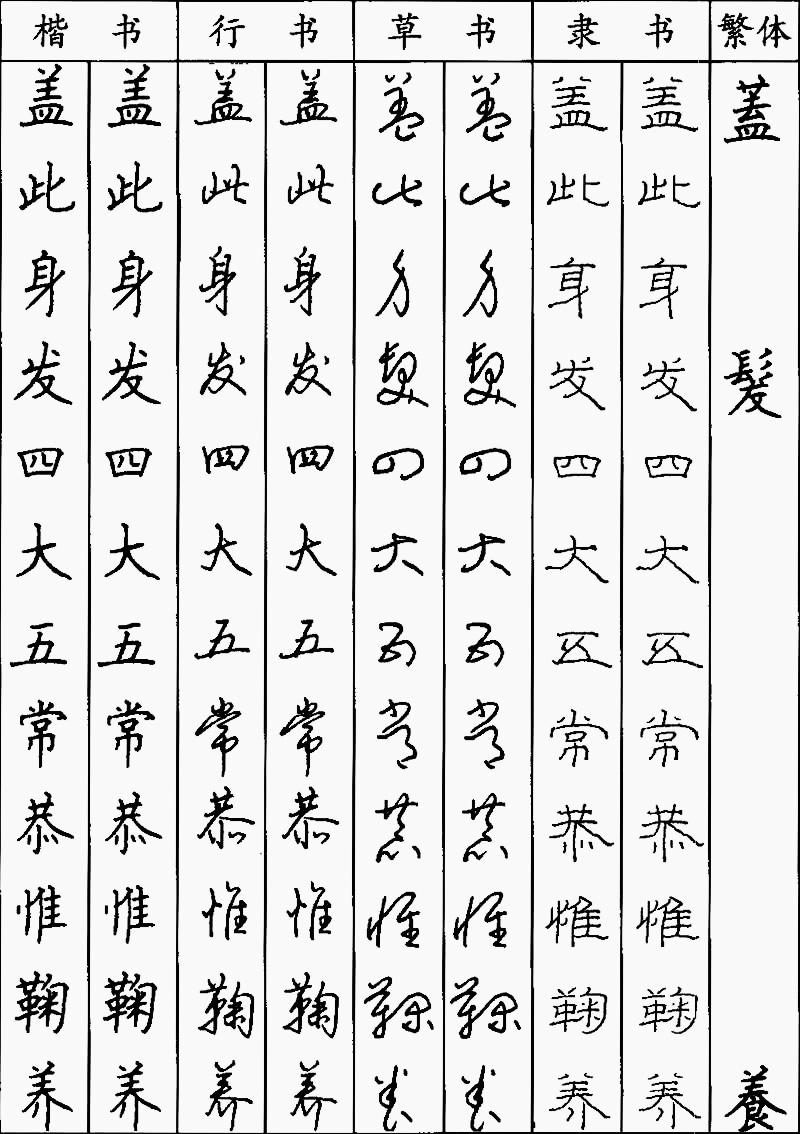 楷书 行书 草书 隶书 繁体
盖 盖 盖 盖 盖 盖 盖 盖 蓋
此 此 此 此 此 此 此 此
身 身 身 身 身 身 身 身
发 发 发 发 发 发 发 发 髮
四 四 四 四 四 四 四 四
大 大 大 大 大 大 大 大
五 五 五 五 五 五 五 五
常 常 常 常 常 常 常 常
恭 恭 恭 恭 恭 恭 恭 恭
惟 惟 惟 惟 惟 惟 惟 惟
鞠 鞠 鞠 鞠 鞠 鞠 鞠 鞠
养 养 养 养 养 养 养 养 養